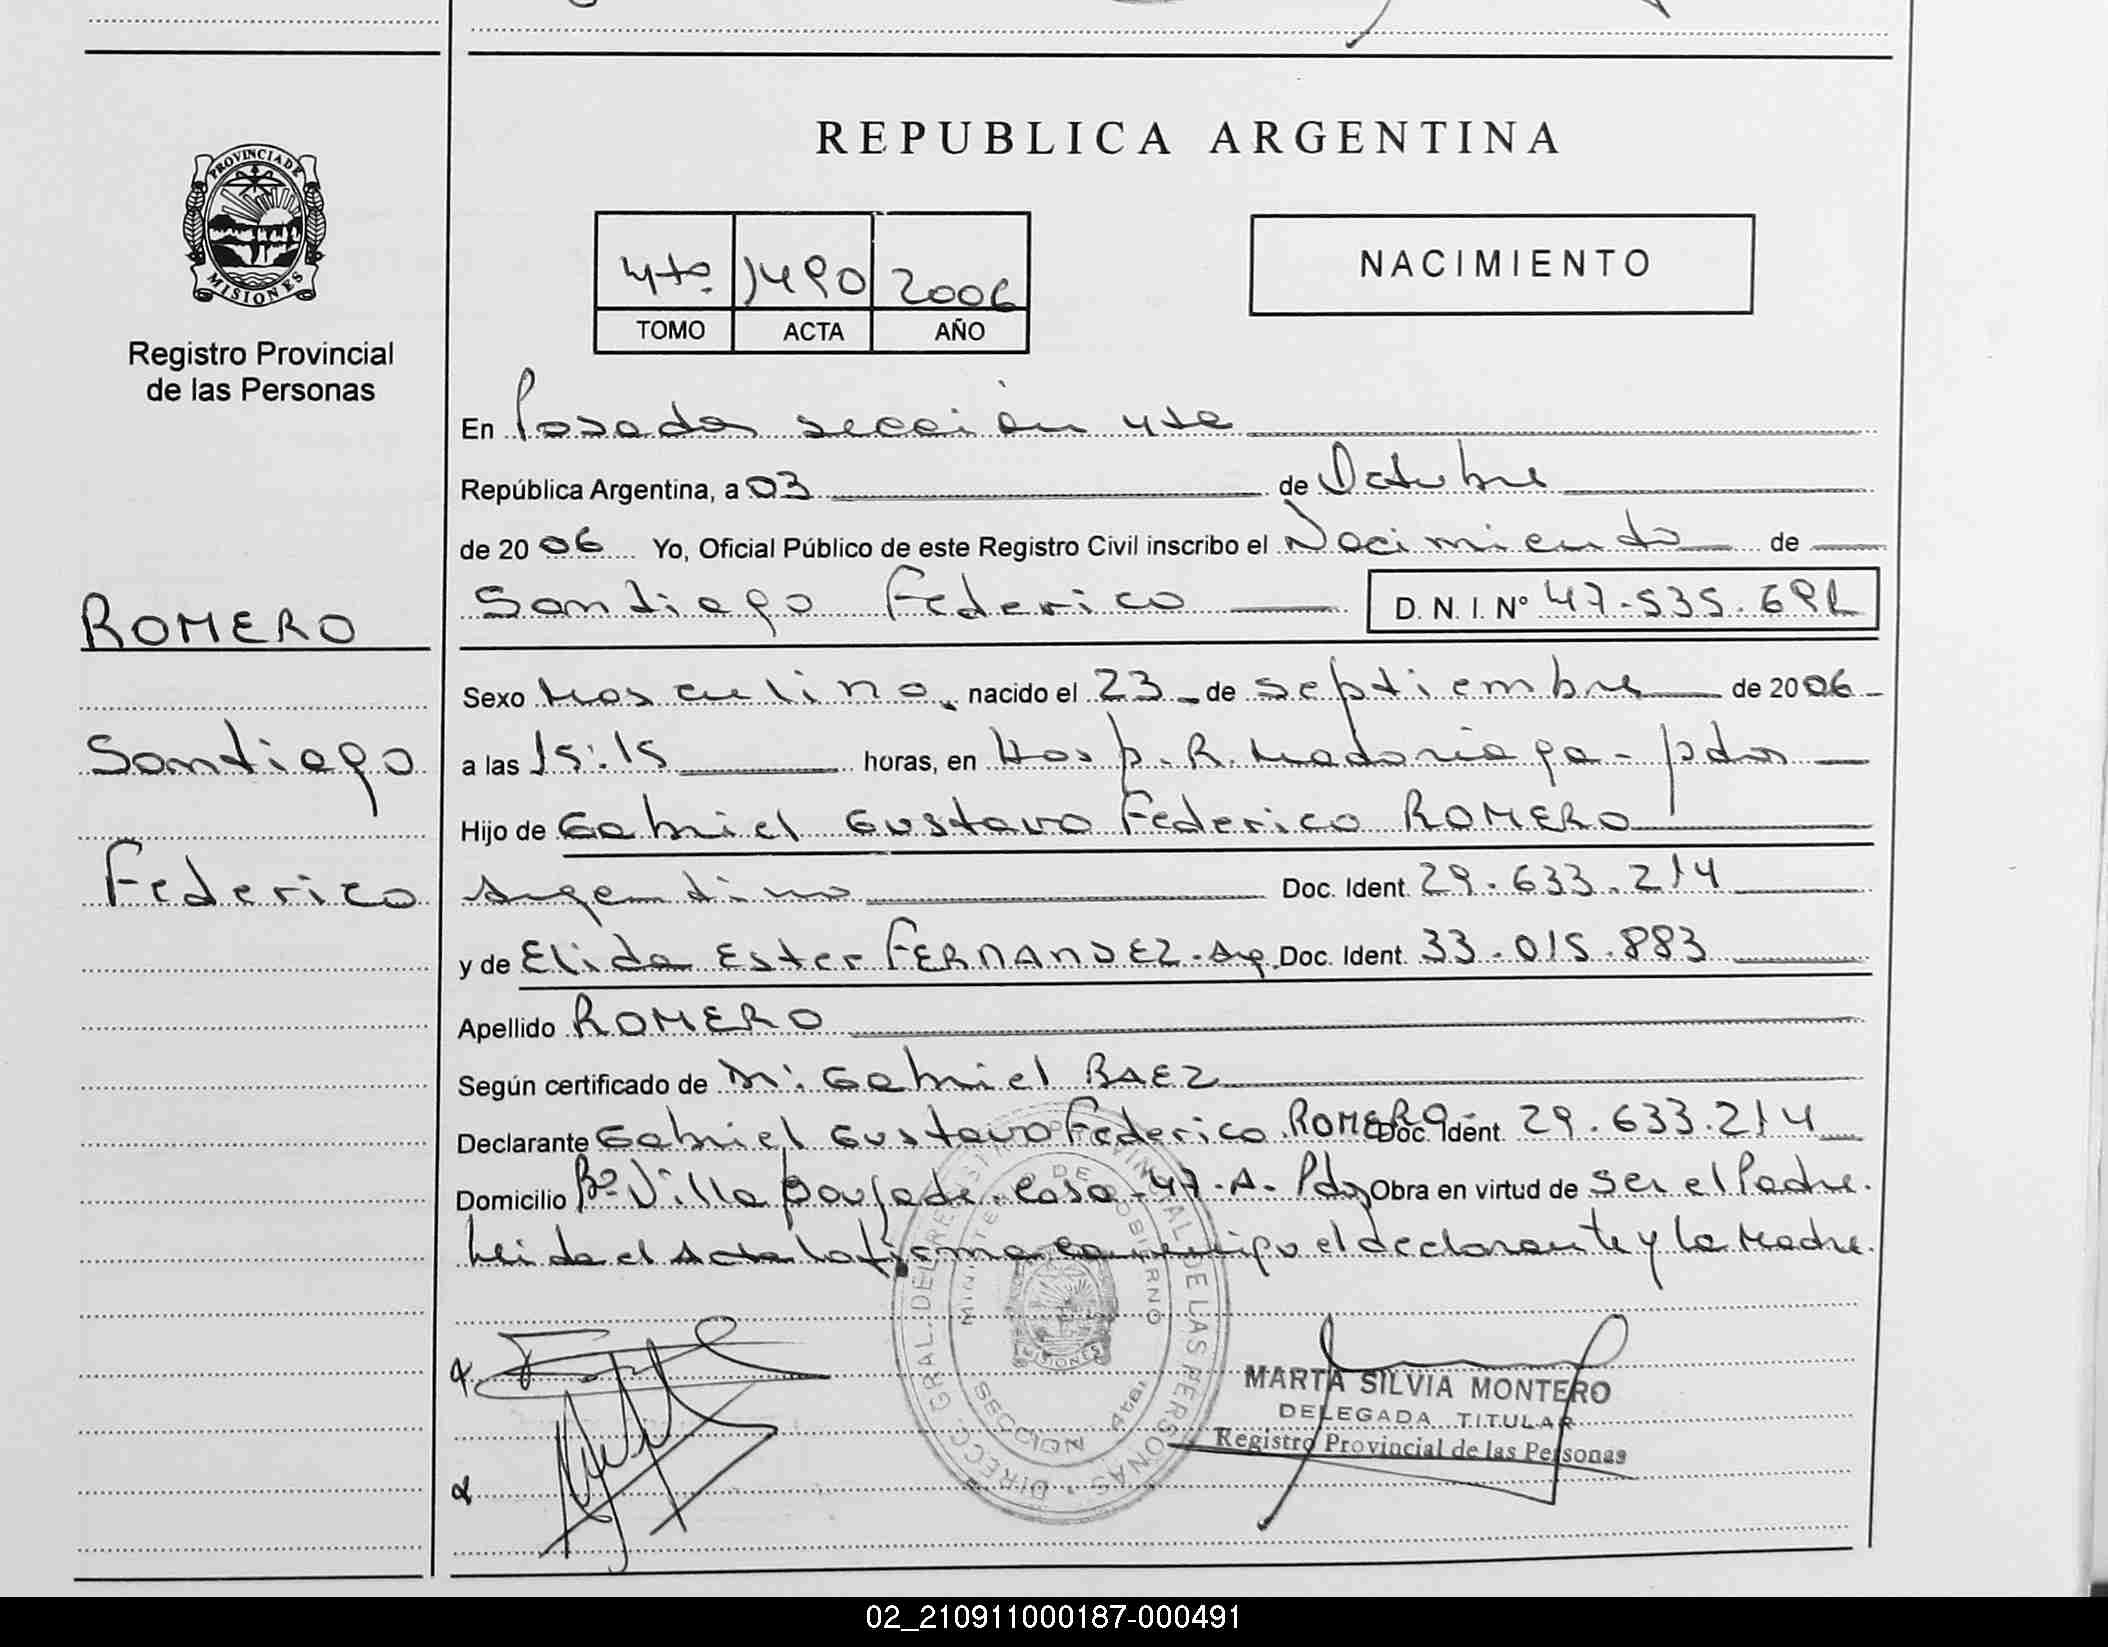 REPUBLICA ARGENTINA
PROVINCIA DE MISIONES
Registro Provincial
de las Personas
4to. 1490 2006
TOMO ACTA AÑO
NACIMIENTO
En Posadas sección 4ta
República Argentina, a 03 de Octubre
de 2006 Yo, Oficial Público de este Registro Civil inscribo el Nacimiento de
Santiago Federico D. N. I. N° 47.535.692
ROMERO
Santiago
Federico
Sexo Masculino, nacido el 23 de septiembre de 2006
a las 15:15 horas, en Hosp. R. Madariaga - Pdas
Hijo de Gabriel Gustavo Federico ROMERO
Argentino Doc. Ident. 29.633.214
y de Elida Ester FERNANDEZ - Arg. Doc. Ident. 33.015.883
Apellido ROMERO
Según certificado de Dr. Gabriel BAEZ
Declarante Gabriel Gustavo Federico ROMERO Doc. Ident. 29.633.214
Domicilio B° Villa Casa - 47 - A - Pdas Obra en virtud de ser el Padre.
Leida el Acta la firma conmigo el declarante y la Madre.
DIRECC. GRAL. DEL REGISTRO PROVINCIAL DE LAS PERSONAS
MINISTERIO DE GOBIERNO
MISIONES
SECCION 4ta
MARTA SILVIA MONTERO
DELEGADA TITULAR
Registro Provincial de las Personas
02_210911000187-000491